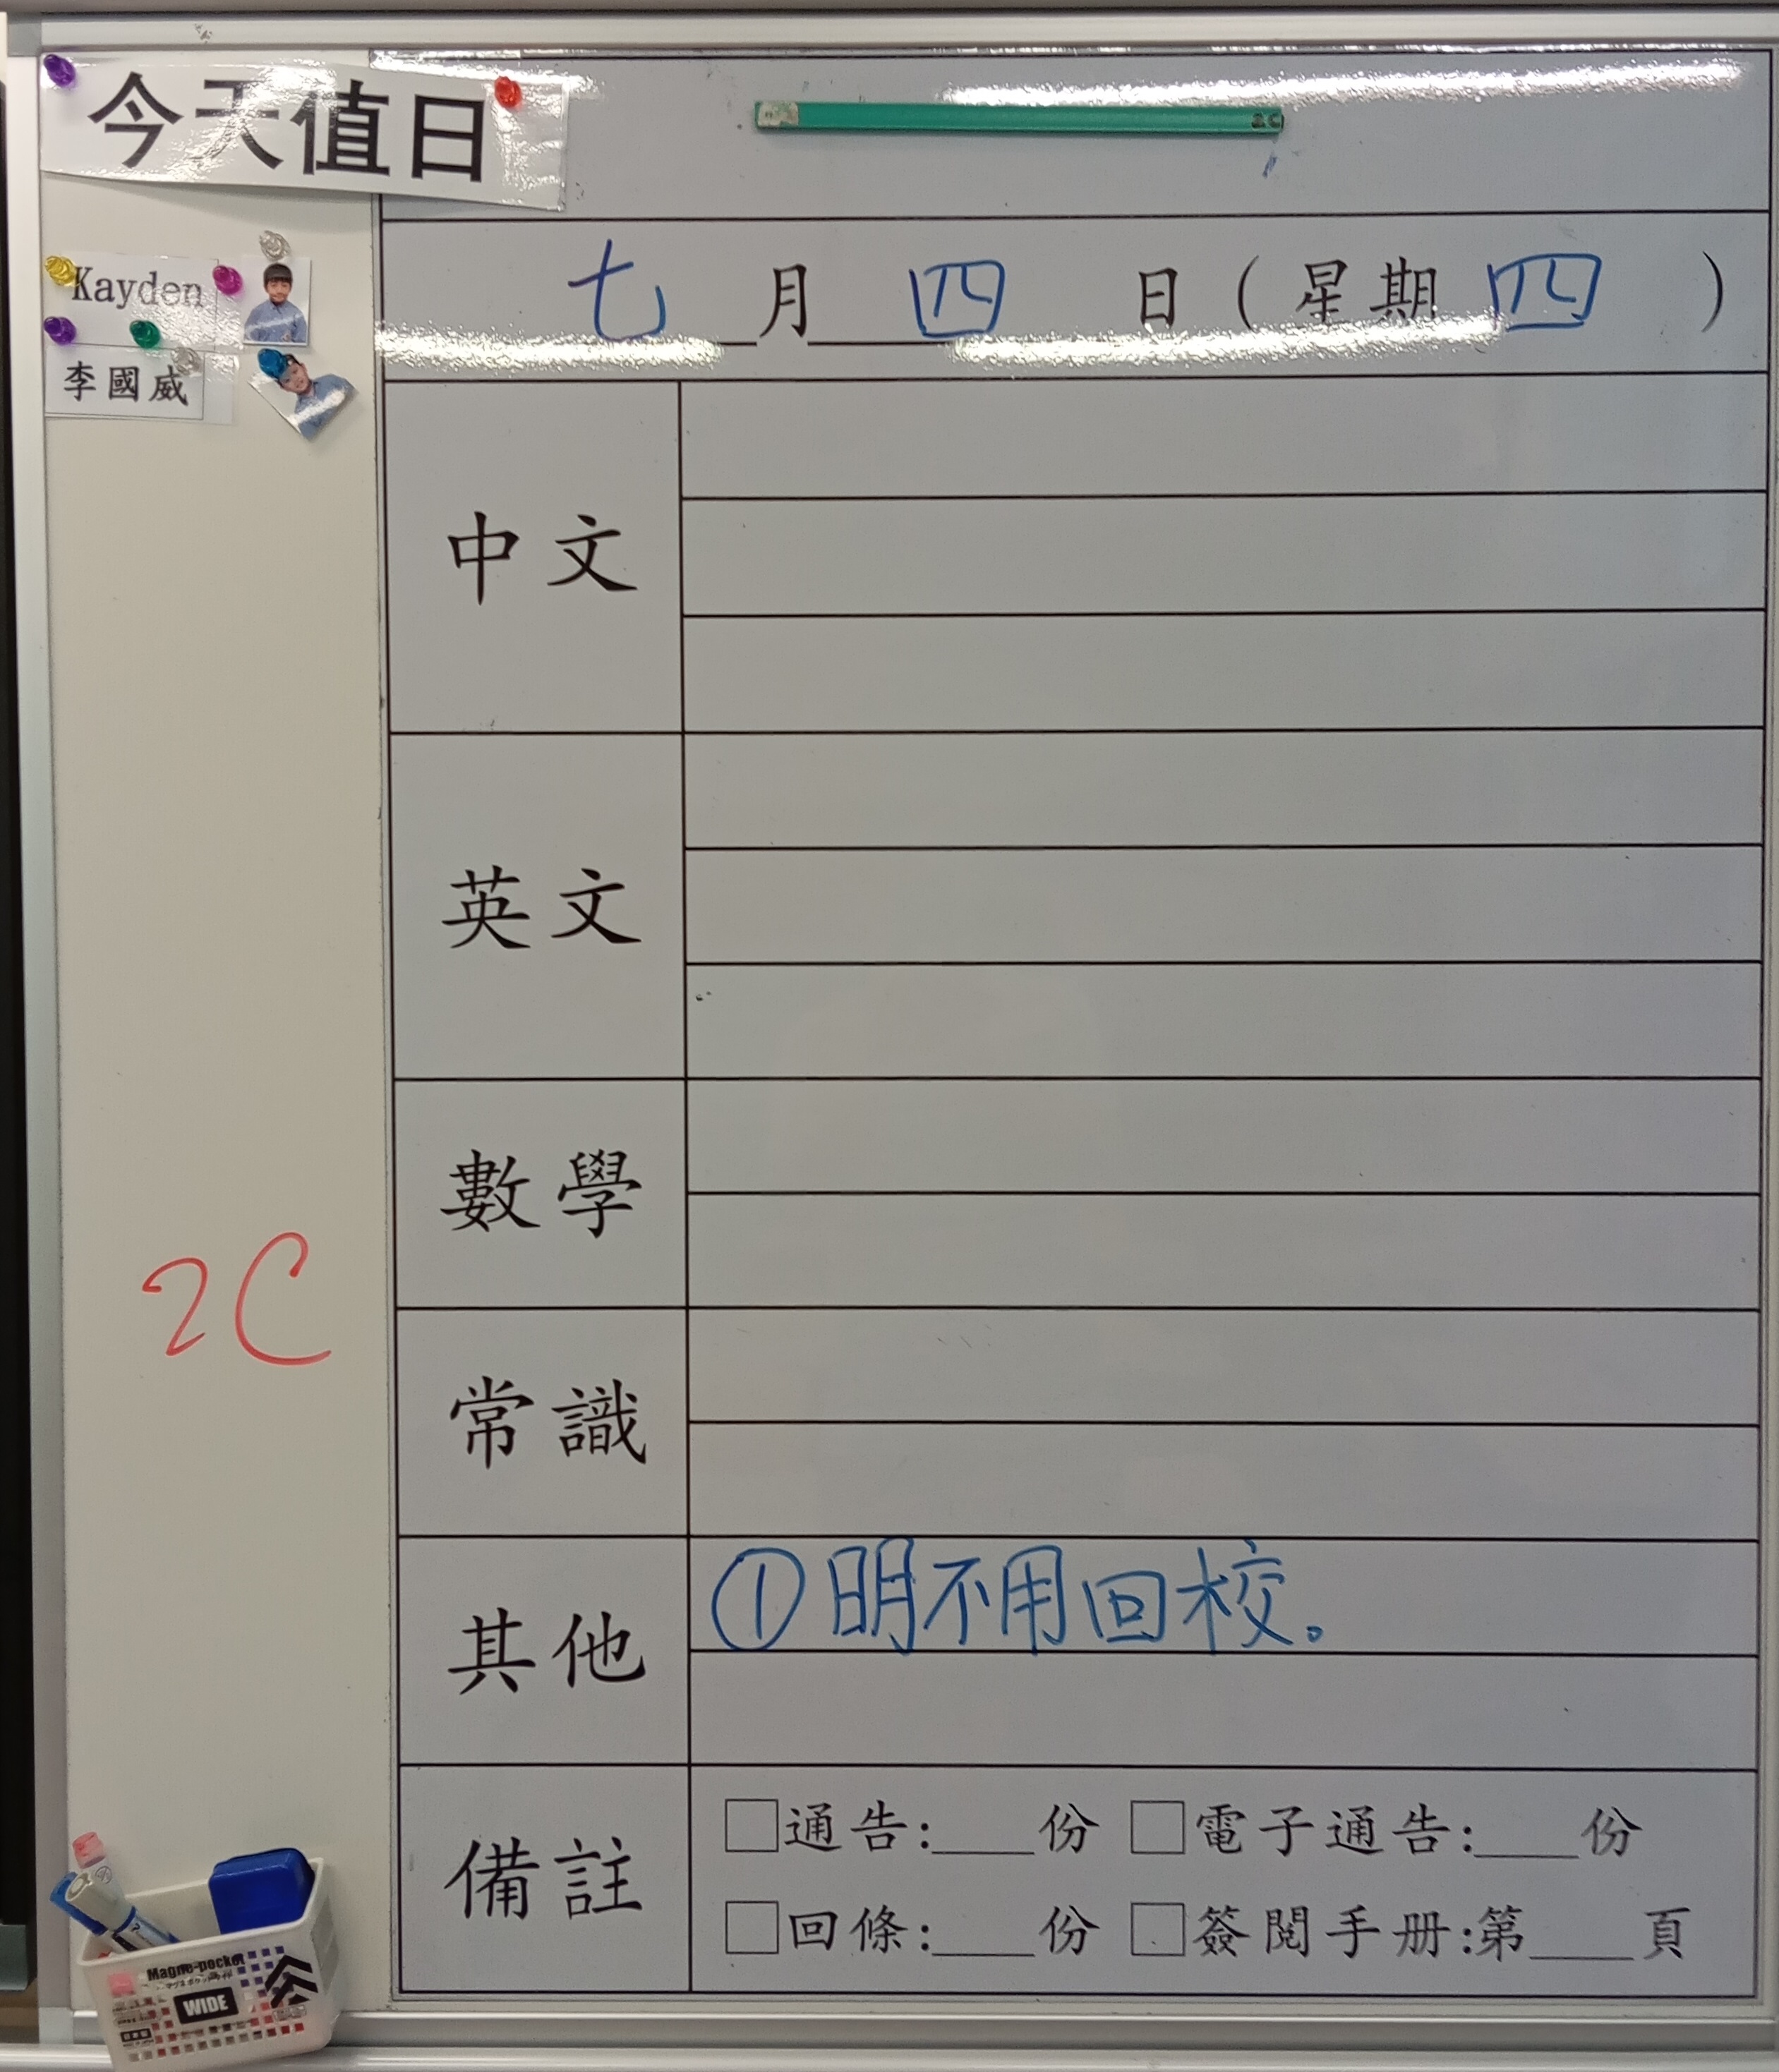 今天值日
2C
七月四日(星期四)
Kayden
李國威
中文
英文
數學
2C
常識
其他
①明不用回校。
備註
通告:___份 電子通告:___份
回條:___份 簽閱手册:第___頁
Magne-pocket
マグネポケットワイド
WIDE